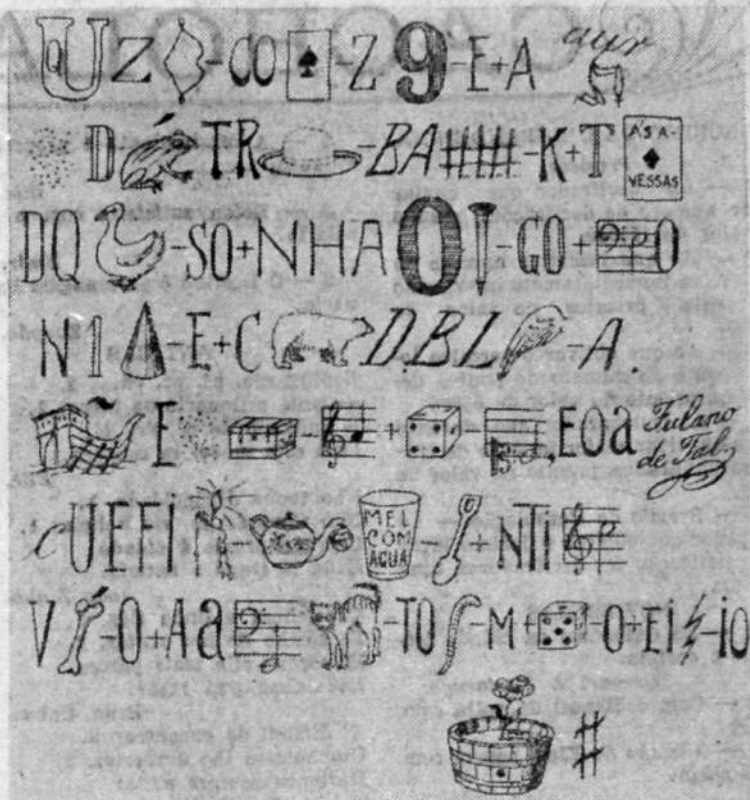 QU Z -CO -Z 9 -E+A
D TR -BA -K+T AS A-VESSAS
DQ -SO+NHA O -GO+ O
N 1 -E+C D.B.L. -A.
E - + - ,EOa Fulano de Tal
cUEFI - MEL COM AGUA - + NTi
V -O+Aa -TO -M+ -O+Ei -io
#